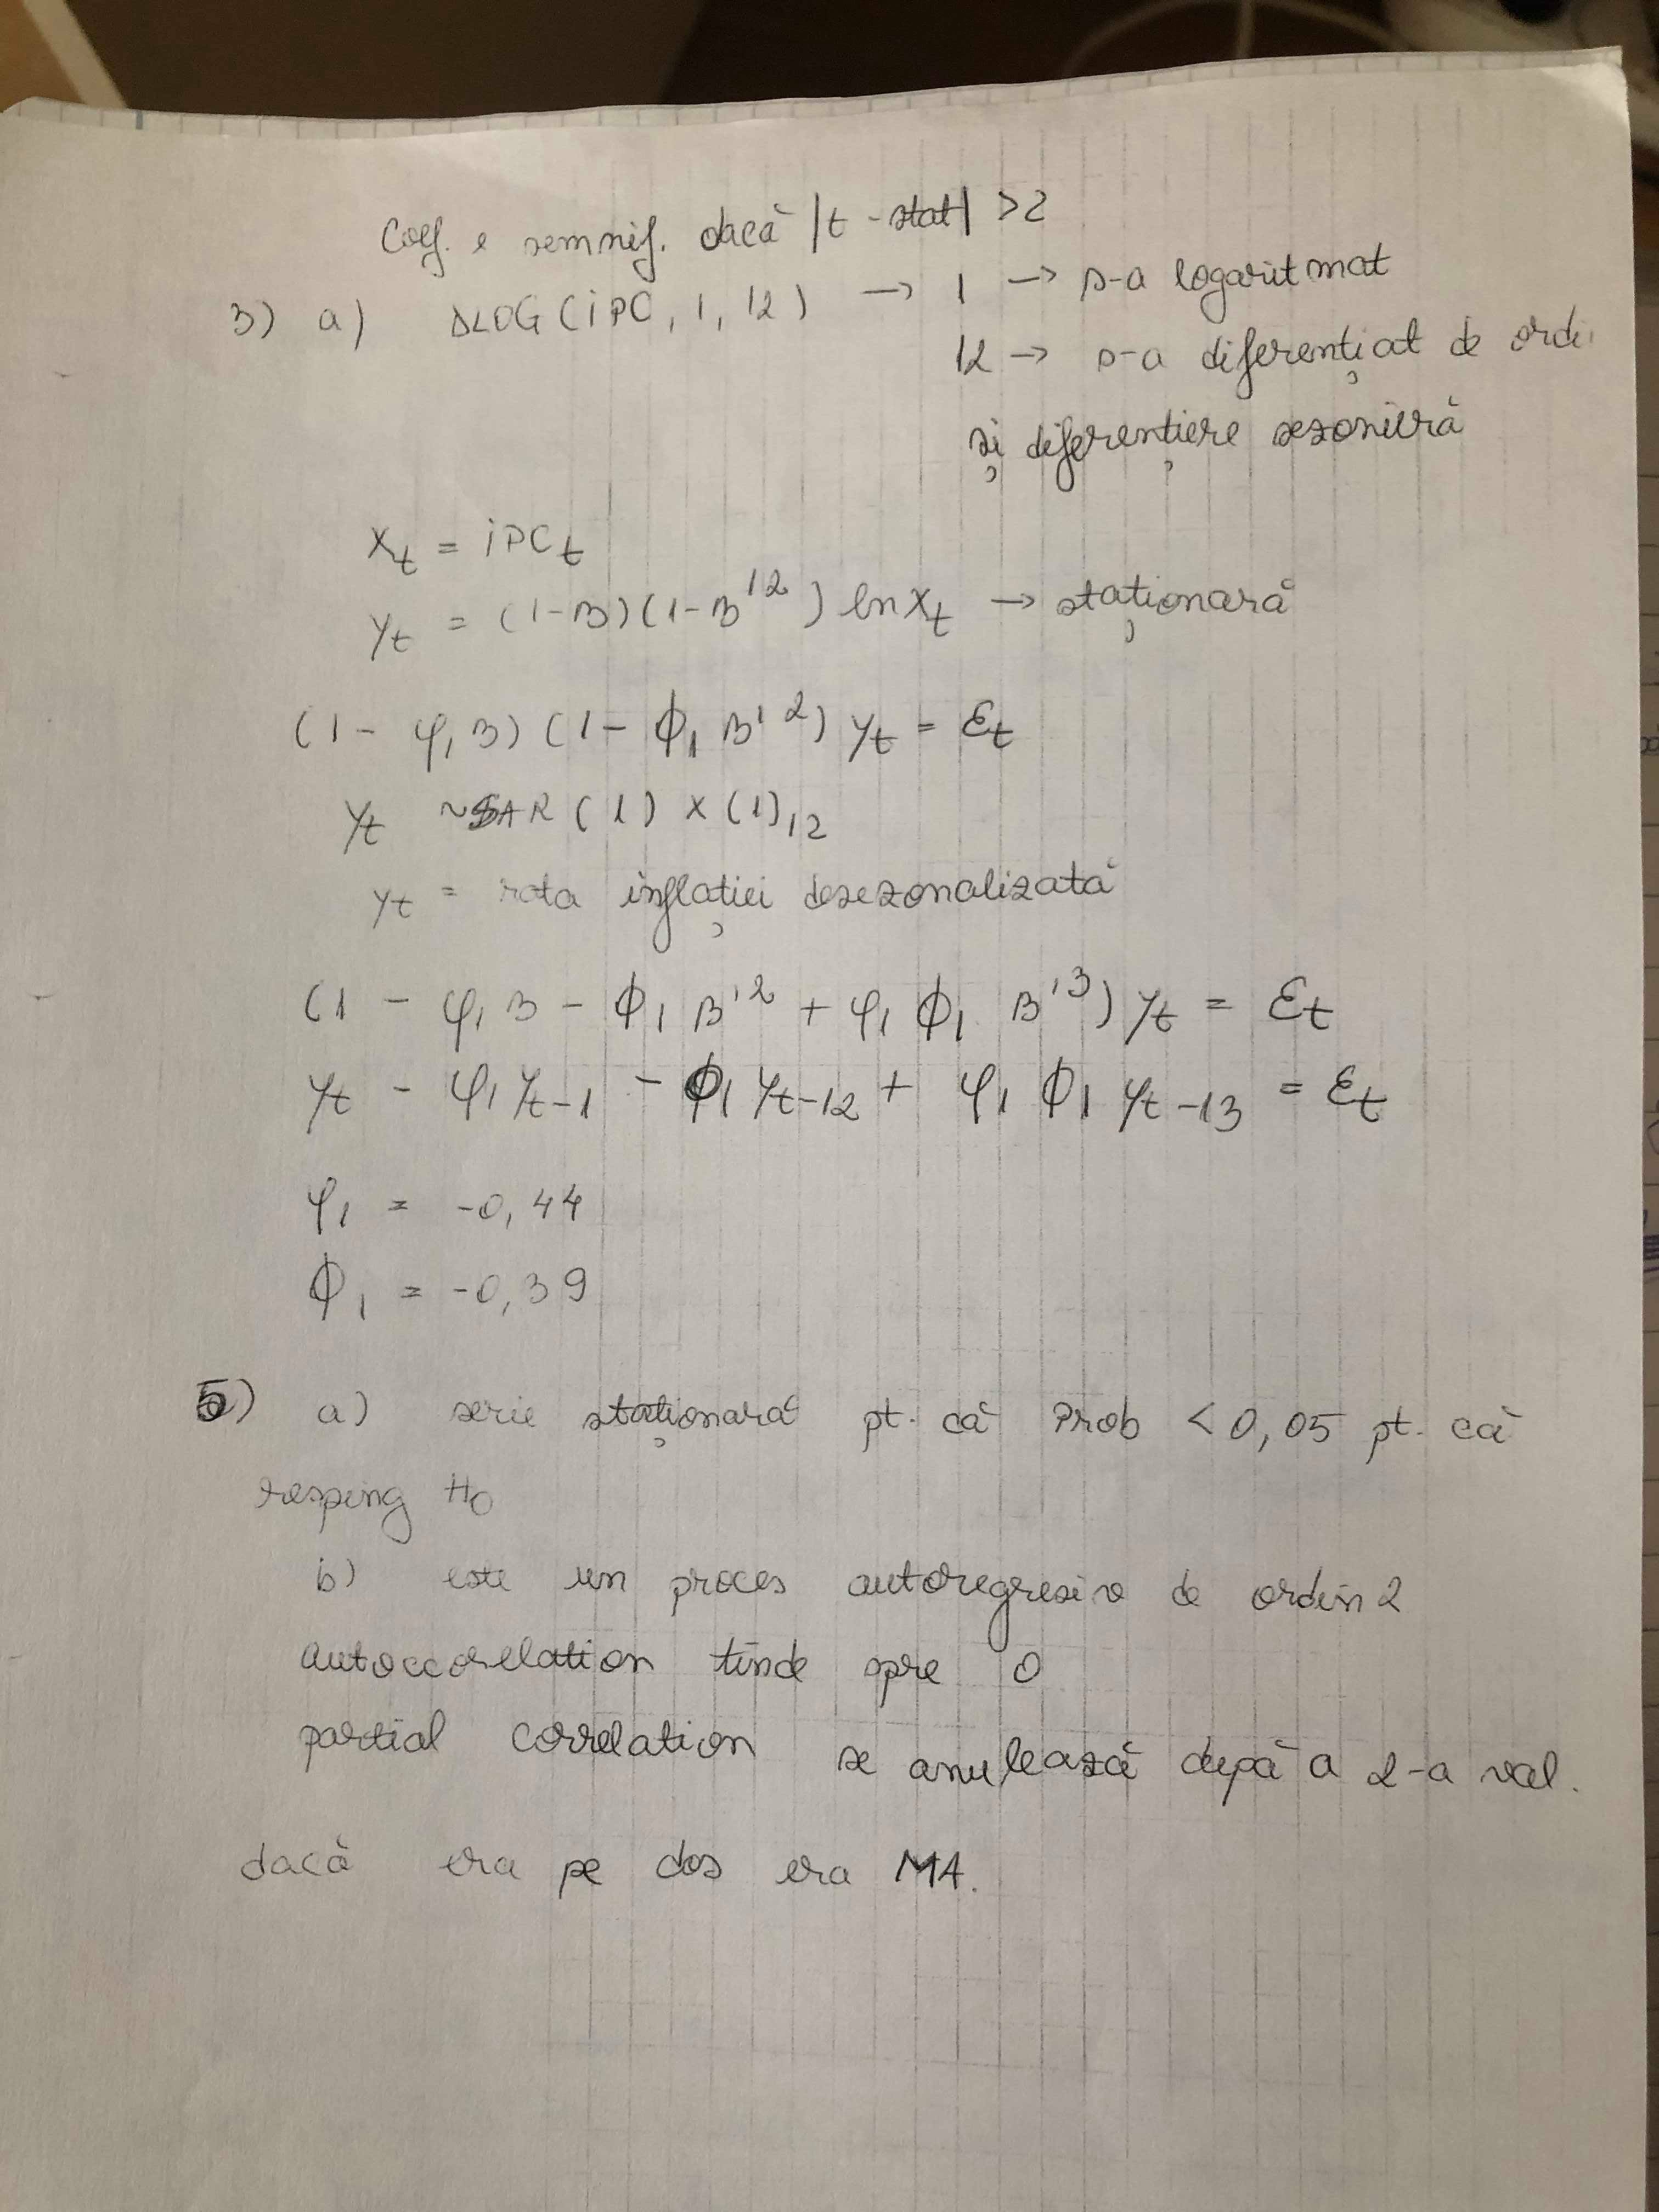 Coef. e semnif. dacă |t-stat| > 2
3) a) DLOG (iPC, 1, 12) → 1 → s-a logaritmat
12 → s-a diferențiat de ordi
și diferențiere sezonieră
Xt = iPCt
yt = (1-B)(1-B¹²) ln Xt → staționară
(1 - φ₁B)(1 - ϕ₁ B¹²) yt = Ɛt
yt ~ SAR (1) × (1)₁₂
yt = rata inflației desezonalizată
(1 - φ₁ B - ϕ₁ B¹² + φ₁ ϕ₁ B¹³) yt = Ɛt
yt - φ₁ yt-1 - ϕ₁ yt-12 + φ₁ ϕ₁ yt-13 = Ɛt
φ₁ = -0,44
ϕ₁ = -0,39
5) a) serie staționară pt. că Prob < 0,05 pt. că
resping H₀
b) este un proces autoregresiv de ordin 2
autoccorelation tinde spre 0
partial correlation se anulează după a 2-a val.
dacă era pe dos era MA.